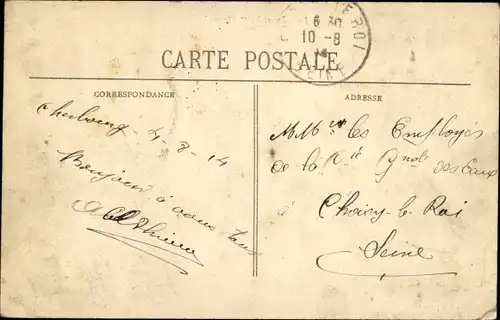 ROI
6 30
10 - 8
14
CARTE POSTALE
CORRESPONDANCE
ADRESSE
Cherbourg - 4-8-14
Bonjour à vous tous
MM rs les Employés
de la Cie Gnale des Eaux
à Choisy-le-Roi
Seine